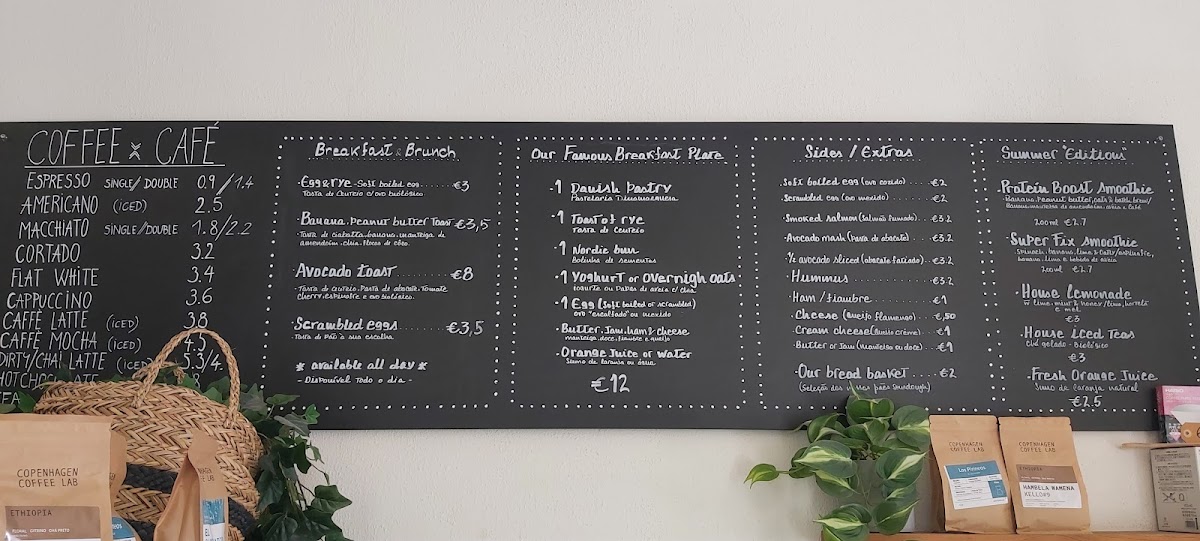 COFFEE x CAFÉ
ESPRESSO SINGLE/DOUBLE 0.9/1.4
AMERICANO (ICED) 2.5
MACCHIATO SINGLE/DOUBLE 1.8/2.2
CORTADO 3.2
FLAT WHITE 3.4
CAPPUCCINO 3.6
CAFFE LATTE (ICED) 3.8
CAFFE MOCHA (ICED) 4.5
DIRTY/CHAI LATTE (ICED)
HOT CHOCOLATE
Breakfast & Brunch
·Egg & rye - Soft boiled egg ..... €3
Tosta de Centeio c/ovo biológico
·Banana, peanut butter Toast €3,5
·Tosta de Ciabatta, banana, manteiga de
amendoim, chia, flocos de côco.
·Avocado toast ........ €8
·Tosta de centeio, Pasta de abacate, Tomate
cherry, espinafre e ovo biológico.
·Scrambled eggs ........ €3,5
Tosta de pão a sua escolha
* available all day *
- Disponível Todo o dia -
Our Famous Breakfast Plate
·1 Danish Pastry
Pastelaria Dinamarquesa
·1 Toast of rye
Tosta de Centeio
·1 Nordic bun
Bolinha de sementes
·1 Yoghurt or Overnigh oats
Iogurte ou Papas de aveia c/chia
·1 Egg (Soft boiled or scrambled)
ovo "escalfado" ou mexido
·Butter, Jam, ham & cheese
manteiga, doce, fiambre e queijo
·Orange Juice or Water
Sumo de laranja ou água
€12
Sides / Extras
·Soft boiled egg (ovo cozido) ........ €2
·Scrambled egg (ovo mexido) ........ €2
·Smoked salmon (Salmão fumado) .... €3.2
·Avocado mash (Pasta de abacate) ..... €3.2
·½ avocado sliced (abacate fatiado) ... €3.2
·Hummus ............ €3.2
·Ham / fiambre ............ €1
·Cheese (Queijo flamengo) ...... €,50
·Cream cheese (Queijo creme) ...... €1
·Butter or Jam (manteiga ou doce) .... €1
·Our bread basket ........ €2
(Seleção dos nossos pães Sourdough)
Summer "Editions"
·Protein Boost Smoothie
200ml €2.7
·Super Fix smoothie
Spinach, banana, lime &
banana, lima e bebida de aveia
200ml €2.7
·House Lemonade
w lime, mint & honey / lima, hortelã
e mel
€3
·House iced Teas
Chá gelado - Biológico
€3
·Fresh Orange Juice
Sumo de laranja natural
€2.5
COPENHAGEN
COFFEE LAB
ETHIOPIA
COPENHAGEN
COFFEE LAB
Los Pirineos
COPENHAGEN
COFFEE LAB
ETHIOPIA
HAMBELA WAMENA